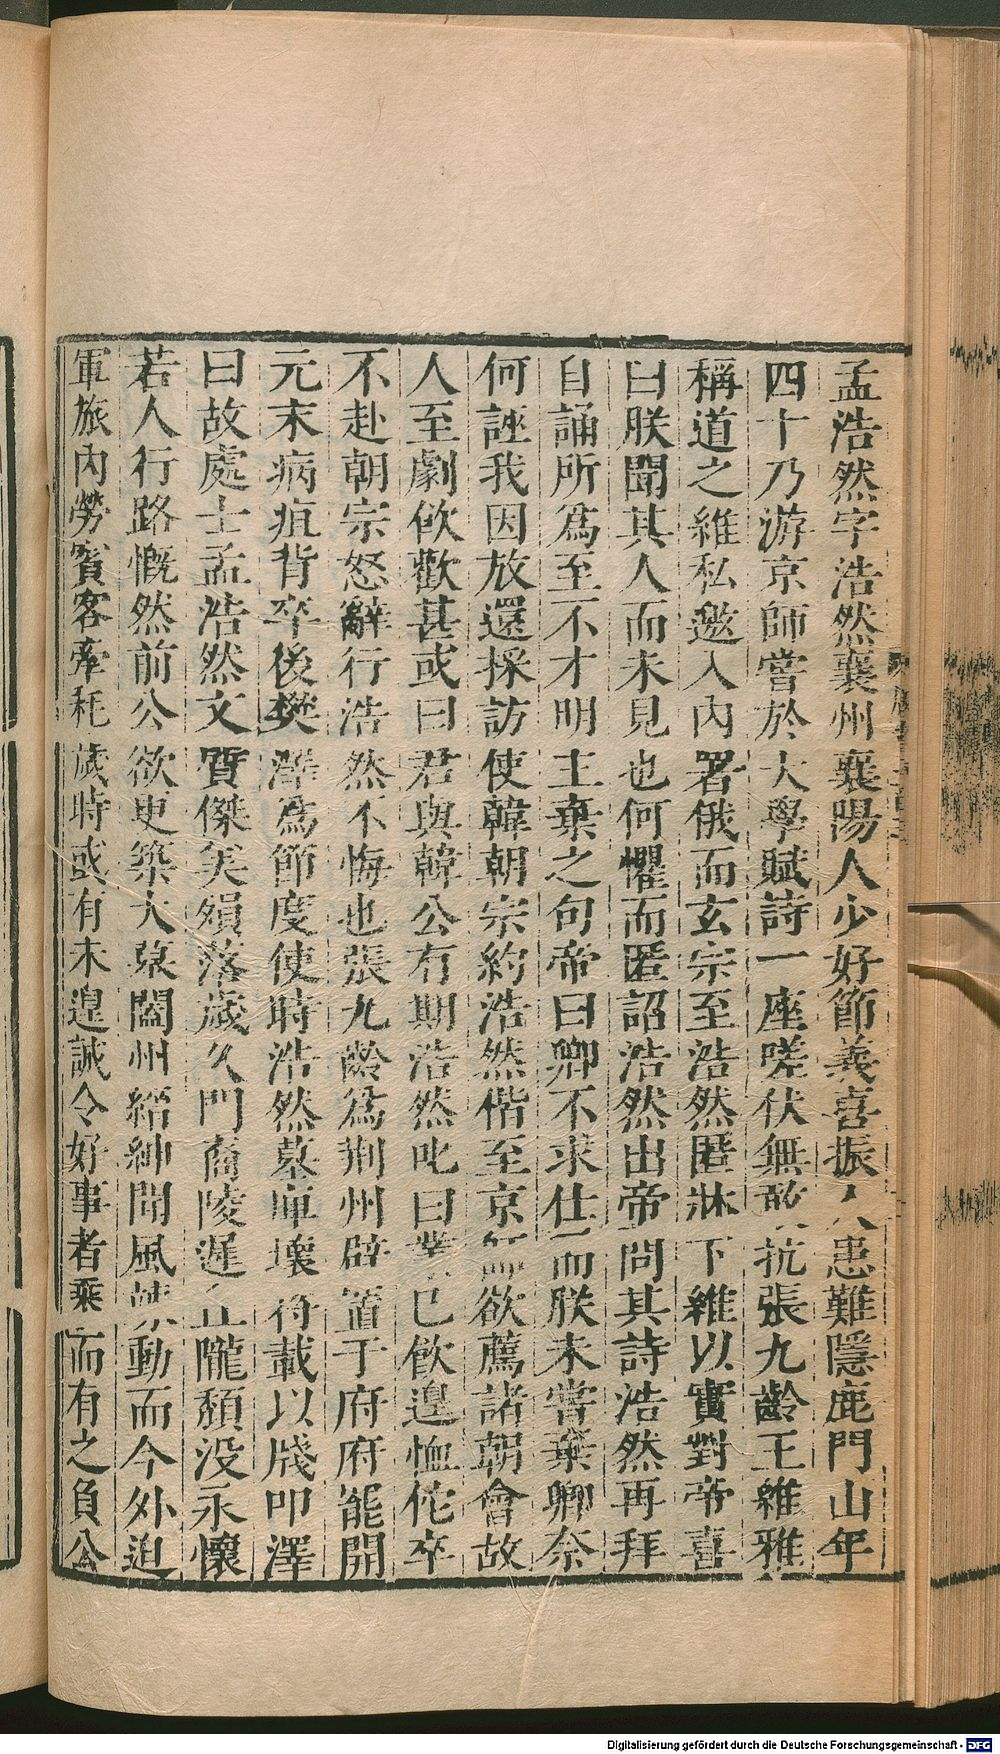 孟浩然字浩然襄州襄陽人少好節義喜振人患難隱鹿門山年
四十乃游京師嘗於大學賦詩一座嗟伏無敢抗張九齡王維雅
稱道之維私邀入內署俄而玄宗至浩然匿牀下維以實對帝喜
曰朕聞其人而未見也何懼而匿詔浩然出帝問其詩浩然再拜
自誦所為至不才明主棄之句帝曰卿不求仕而朕未嘗棄卿奈
何誣我因放還採訪使韓朝宗約浩然偕至京師欲薦諸朝會故
人至劇飲歡甚或曰君與韓公有期浩然叱曰業已飲遑恤佗卒
不赴朝宗怒辭行浩然不悔也張九齡為荆州辟置于府府罷開
元末病疽背卒後樊澤為節度使時浩然墓庳壞符載以牋叩澤
曰故處士孟浩然文質傑美殞落歲久門裔陵遲丘隴頹没永懷
若人行路慨然前公欲更築大㙛闔州縉紳聞風竦動而今外迫
軍旅內勞賓客牽耗歲時或有未遑誠令好事者乘而有之負公
Digitalisierung gefördert durch die Deutsche Forschungsgemeinschaft - DFG